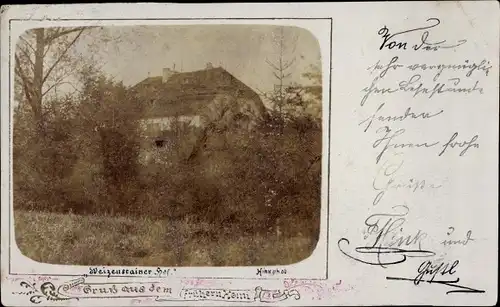 "Weizenstainer Hof."
Hinxphot
Gruß aus dem
Von der
sehr vergnüglich
chen Besestunde
senden
Ihnen frohe
Grüße
Hink und
Gustl